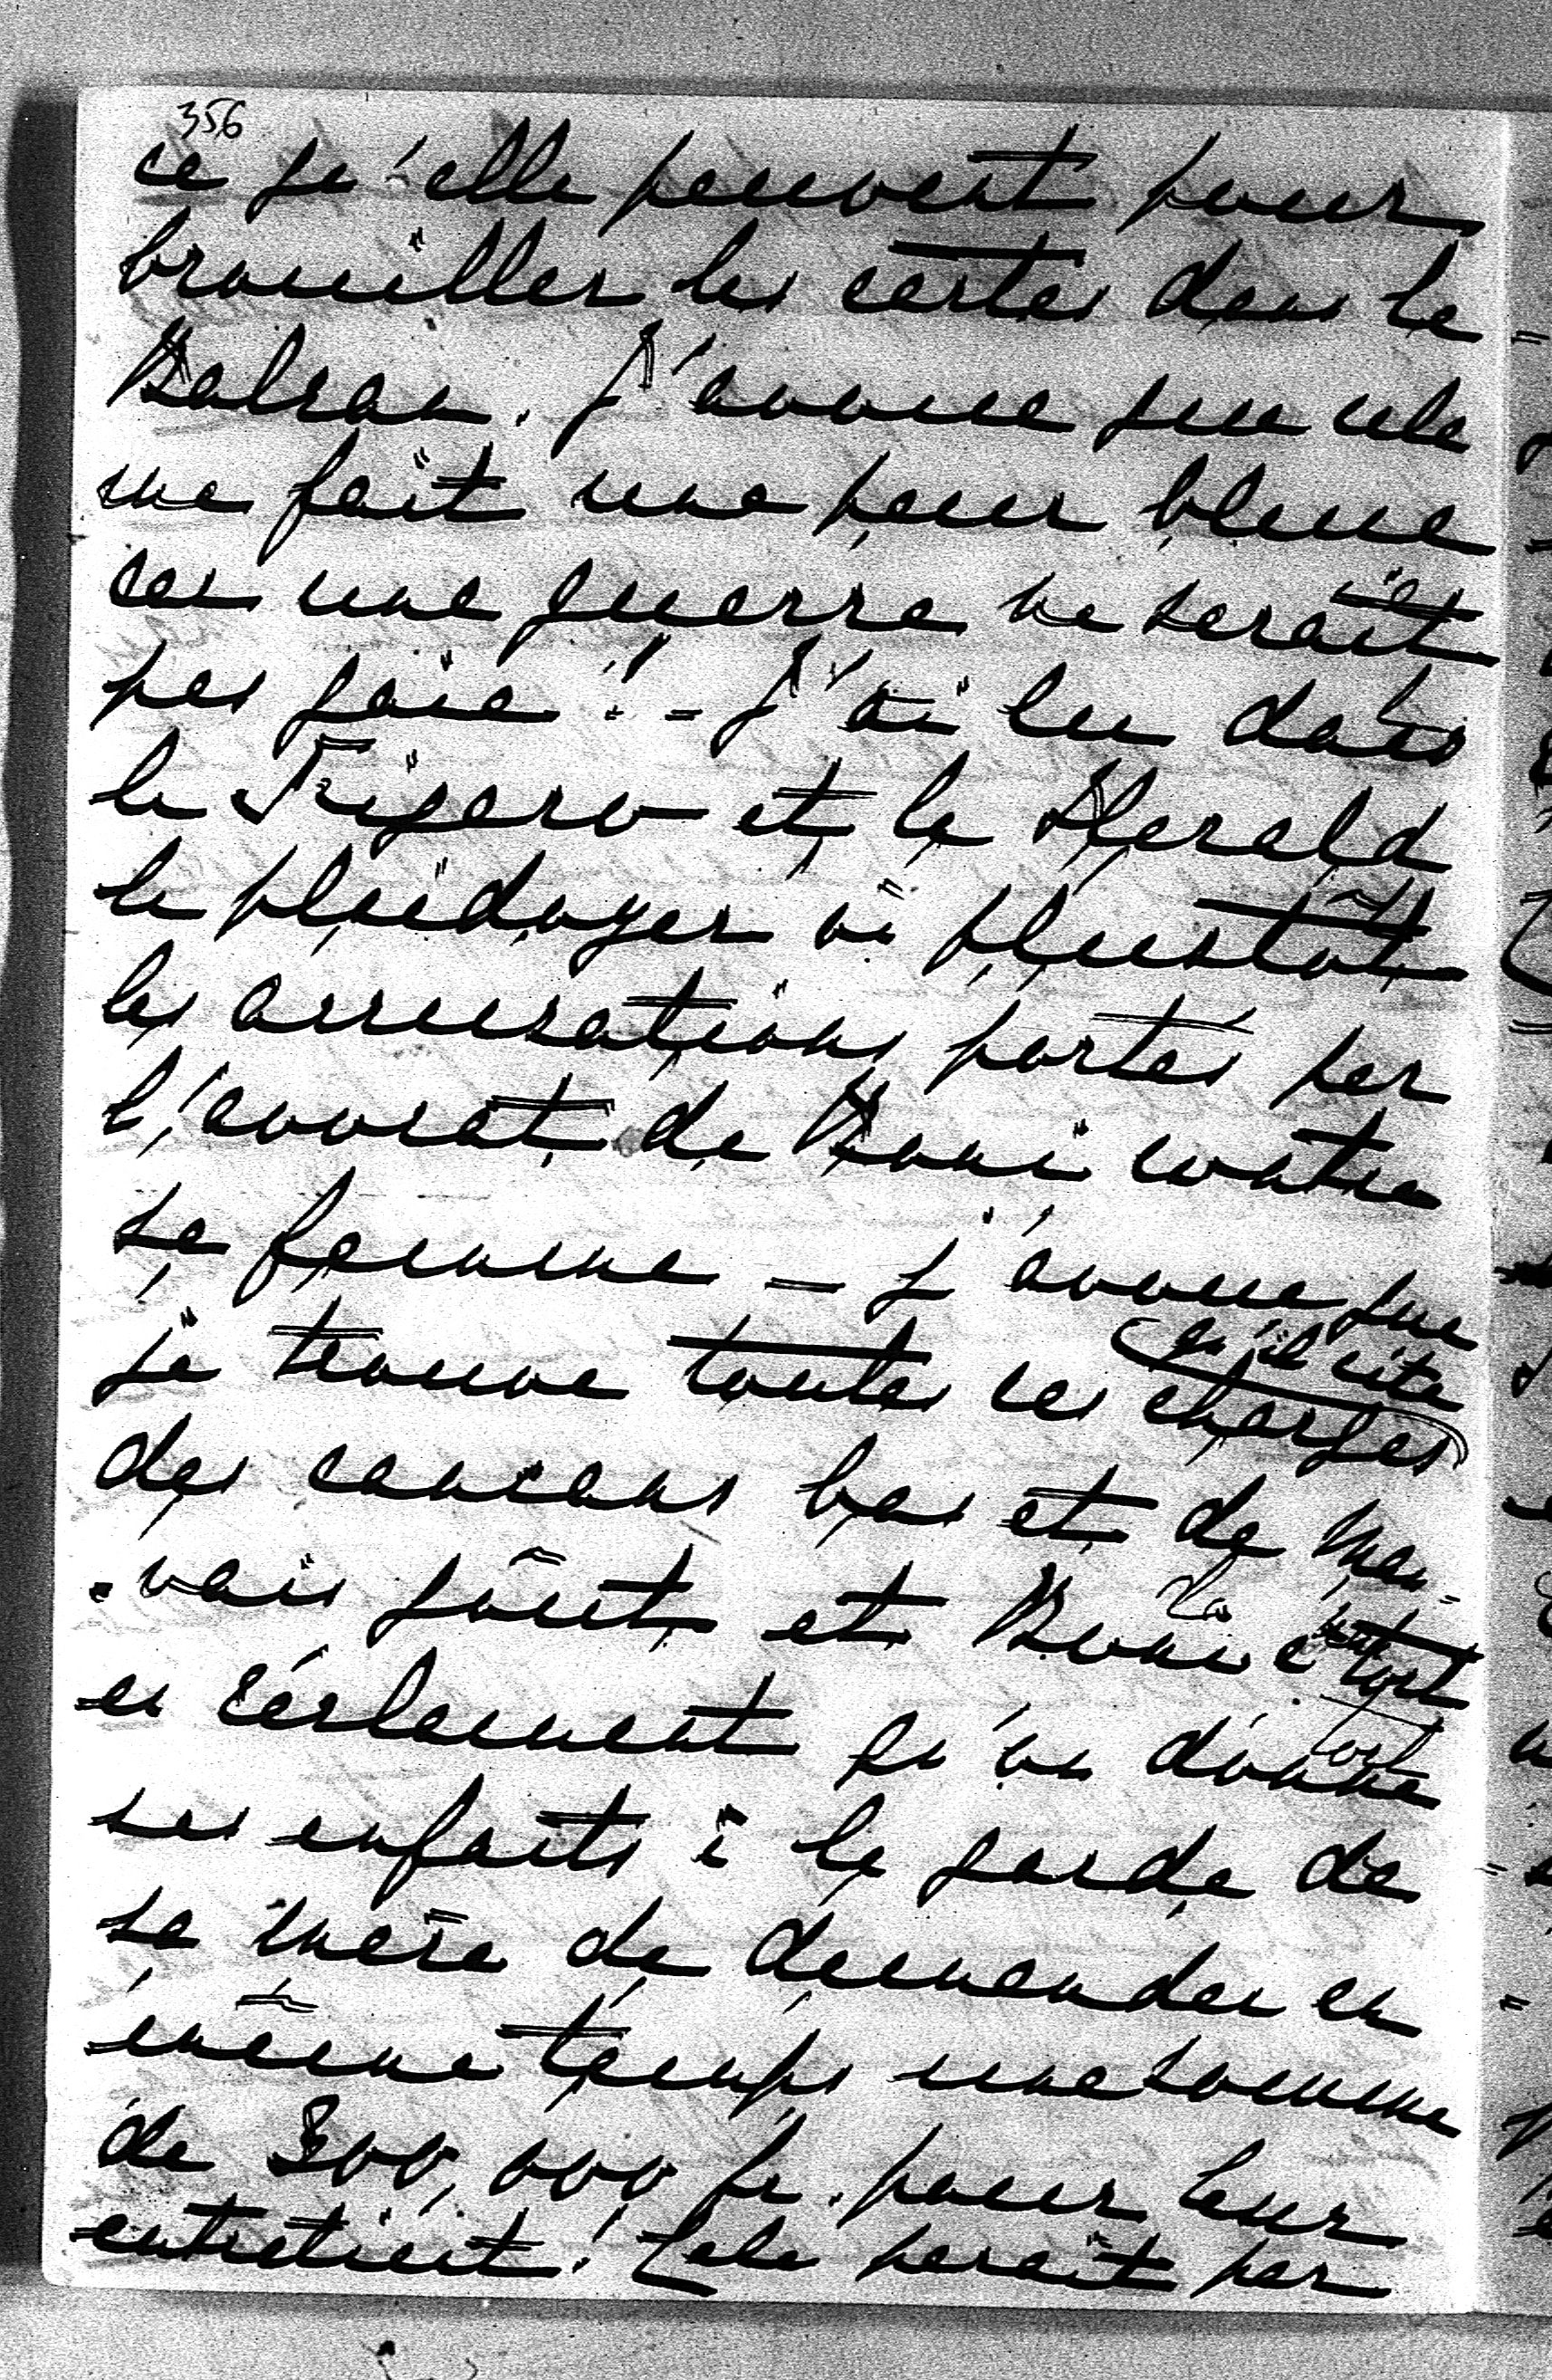 356
ce qu'elle peuvent pour
brouiller les cartes dans le
Balcan. J'avoue que cela
me fait une peur bleue
car une guerre ne serait
pas gaie! - J'ai lu dans
le Figaro et le Herald
le plaidoyer où plustôt
les accusations portés par
l'avocat de Boni contre
sa femme - j'avoue que
je trouve toutes ces charges
qu'il cite
des cancans bas et de mau-
-vais goût et Boni a tort
en réclament qu'on donne
ses enfants à la garde de
sa mère de demander en
même temps une somme
de 300,000 fr. pour leur
entretient! Cela parait par